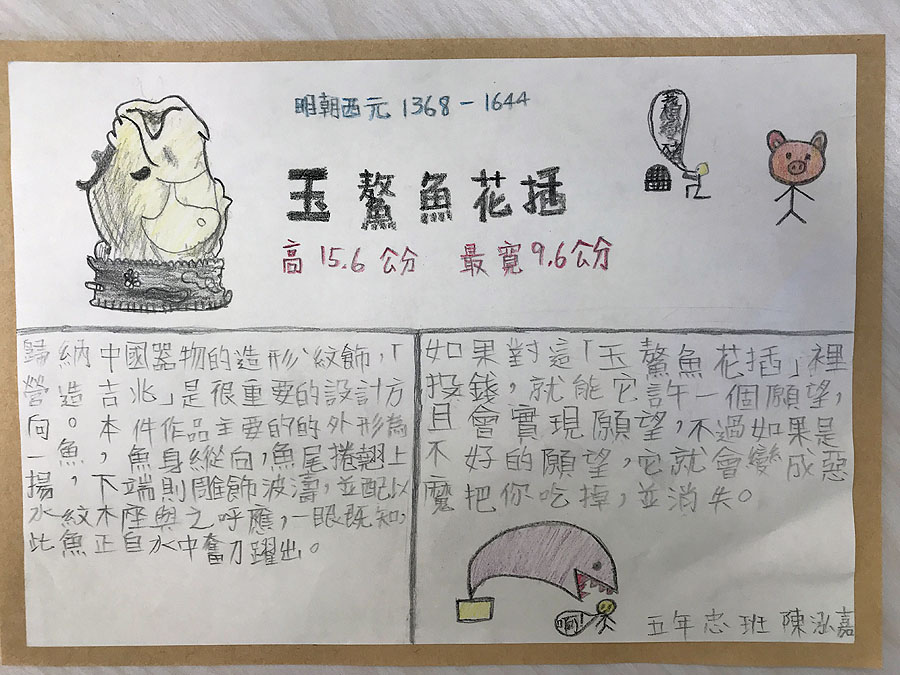 明朝西元 1368 - 1644
我想變豬
玉鰲魚花插
高 15.6 公分 最寬 9.6 公分
歸納中國器物的造形、紋飾,「
營造吉兆」是很重要的設計方
向。本件作品主要的的外形為
一魚,魚身縱向,魚尾捲翹上
揚,下端則雕飾波濤,並配以
水紋木座與之呼應,一眼既知,
此魚正自水中奮力躍出。
如果對這「玉鰲魚花插」裡
投錢,就能它許一個願望,
且會實現願望,不過如果是
不好的願望,它就會變成惡
魔把你吃掉,並消失。
啊!
五年忠班 陳泓嘉